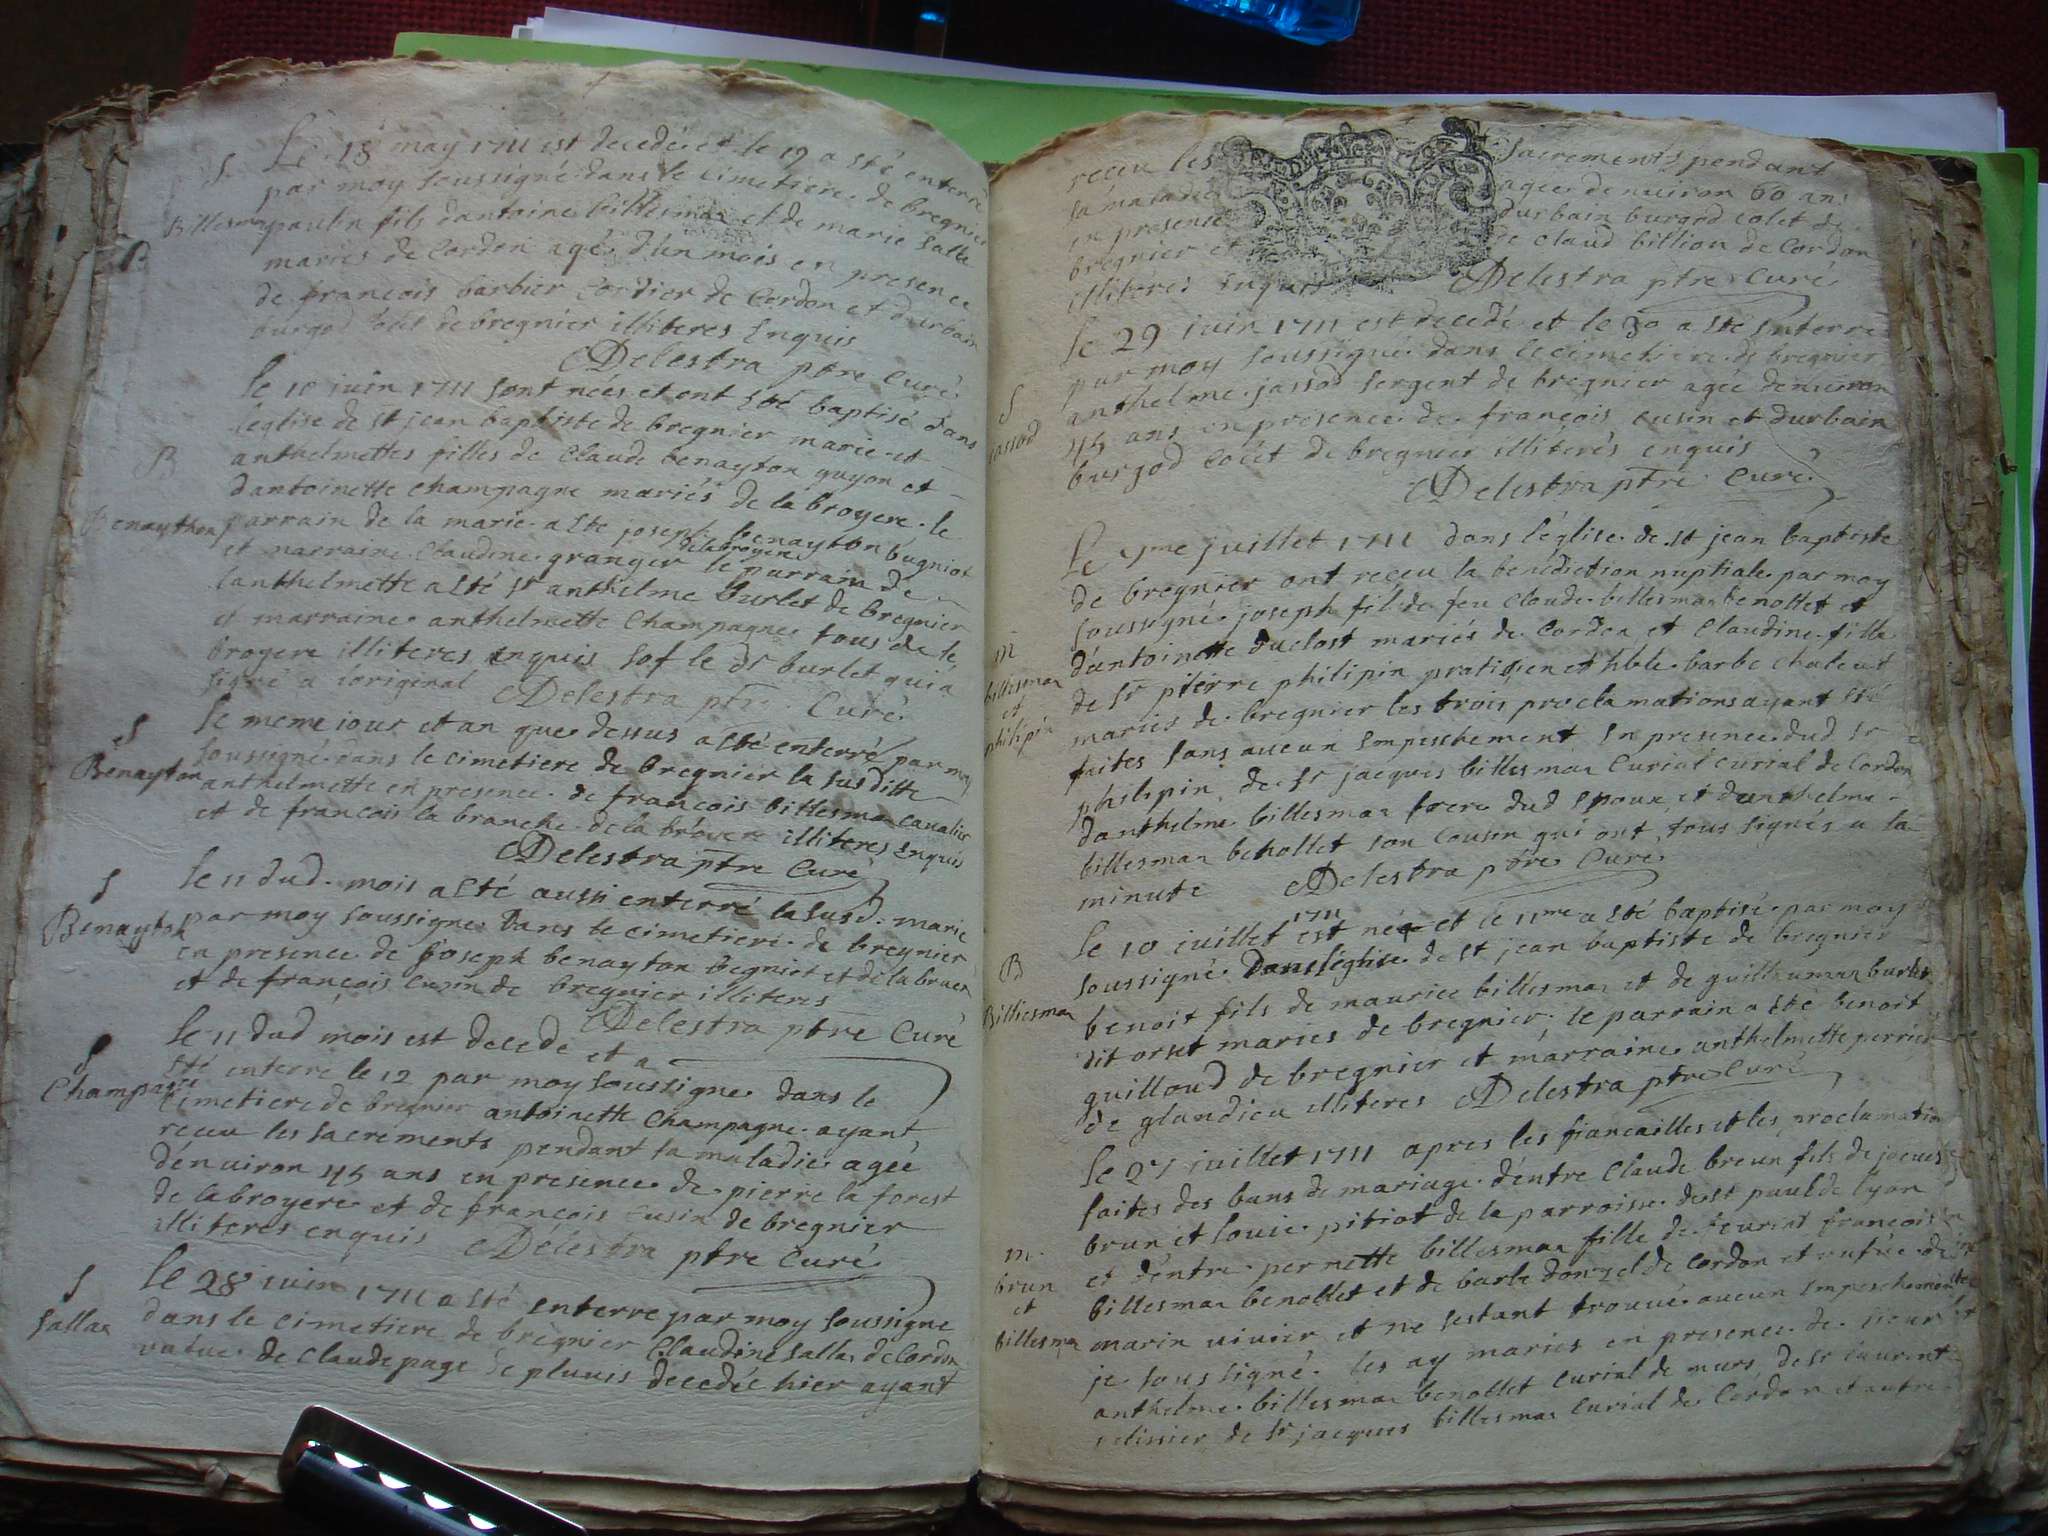 S. Le 18 may 1711 est decedé et le 19 a sté enterré
par moy soussigné dans le cimetiere de bregnier
Billesmaz paulin fils dantoine billesmaz et de marie salle
B
maries de Cordon agé d'un mois en presence
de francois barbier cordier de Cordon et durbain
burgod colet de bregnier illiteres Enquis
Delestra ptre Curé
le 10 juin 1711 sont nées et ont sté baptisé dans
leglise de st jean baptiste de bregnier marie et
B anthelmettes filles de Claude benayton guyon et
dantoinette champagne mariés de la broyere. le
Benaython parrain de la marie a sté joseph benayton bugniot
delabroyere
et marraine Claudine granger le parrain de
lanthelmette a sté sr anthelme burlet de bregnier
et marraine anthelmette Champagne tous de la
broyere illiteres enquis sof le dt burlet qui a
signé a loriginal Delestra ptre Curé
S le meme iour et an que dessus a sté enterré par moy
soussigné dans le cimetiere de bregnier la susditte
Benayton anthelmette en presence de francois billesmaz cavalier
et de francois la branche de la broyere illiteres Enquis
Delestra ptre Curé
S le 11 dud. mois a sté aussi enterré la susd. marie
Benayton par moy soussigne Dans le cimetiere de bregnier
en presence de Joseph benayton begniot et de la bruere
et de francois cusin de bregnier illiteres
Delestra ptre Curé
S le 11 dud mois est decedé et a
Champagne sté enterre le 12 par moy soussigne dans le
cimetiere de bregnier antoinette Champagne ayant
receu les sacrements pendant sa maladie agée
dénuiron 45 ans en presence de pierre la forest
de labroyere et de francois Cusin de bregnier
illiteres enquis Delestra ptre Curé
S Le 28 iuin 1711 a sté enterre par moy soussigne
Sallaz dans le cimetiere de bregnier Claudine sallaz de Cordon
vefue de Claude page de pluuis decedée hier ayant
receu les sacrements pendant
sa maladie agee denuiron 60 ans
en presence durbain burgod colet de
bregnier et de Claud billion de Cordon
illiteres enquis Delestra ptre Curé
le 29 iuin 1711 est decedé et le 30 a sté enterre
par moy soussigné dans le cimetiere de bregnier
S anthelme jassod sergent de bregnier agée denuiron
iassod 45 ans en presence de francois cusin et durbain
burgod colet de bregnier illiterés enquis
Delestra ptre Curé
Le 7me juillet 1711 dans léglise de st jean baptiste
de bregnier ont receu la benediction nuptiale par moy
soussigné joseph fil de feu Claude billesmaz benollet et
m dantoinette duclost mariés de Cordon et Claudine fille
billesmaz de sr pierre philipin pratisien et hble barbe
et maries de bregnier les trois proclamations ayant sté
philipin faites sans aucun Empeschement En presence dud sr
philipin, de sr jacques billesmaz Curial curial de Cordon
danthelme billesmaz frere dud Epoux et danthelme
billesmaz benollet son cousin qui ont tous signés a la
minute Delestra ptre Curé
1711
le 10 iuillet est née et le 11me a sté baptisé par moy
B soussigné Dans léglise de st jean baptiste de bregnier
Billiesmaz benoit fils de maurice billesmaz et de guillaumaz burlet
dit orset maries de bregnier; le parrain a sté benoit
guilloud de bregnier et marraine anthelmette perrier
de glandieu illiteres Delestra ptre Curé
le 27 iuillet 1711 apres les fiancailles et les proclamation
faites des bans de mariage d'entre Claude breun fils de jacues
brun et louie pitiot de la parroisse de st paul de lyon
m. et d'entre pernette billesmaz fille de francois
brun billesmaz benollet et de barbe donzel de Cordon et vefue de
et marin uiuier et ne sestant trouué aucun Empeschement
billesmaz je soussigné les ay maries en presence de sieur
anthelme billesmaz benollet curial de murs, de sr laurent
pelissier de sr jacques billesmaz Curial de Cordon et autre